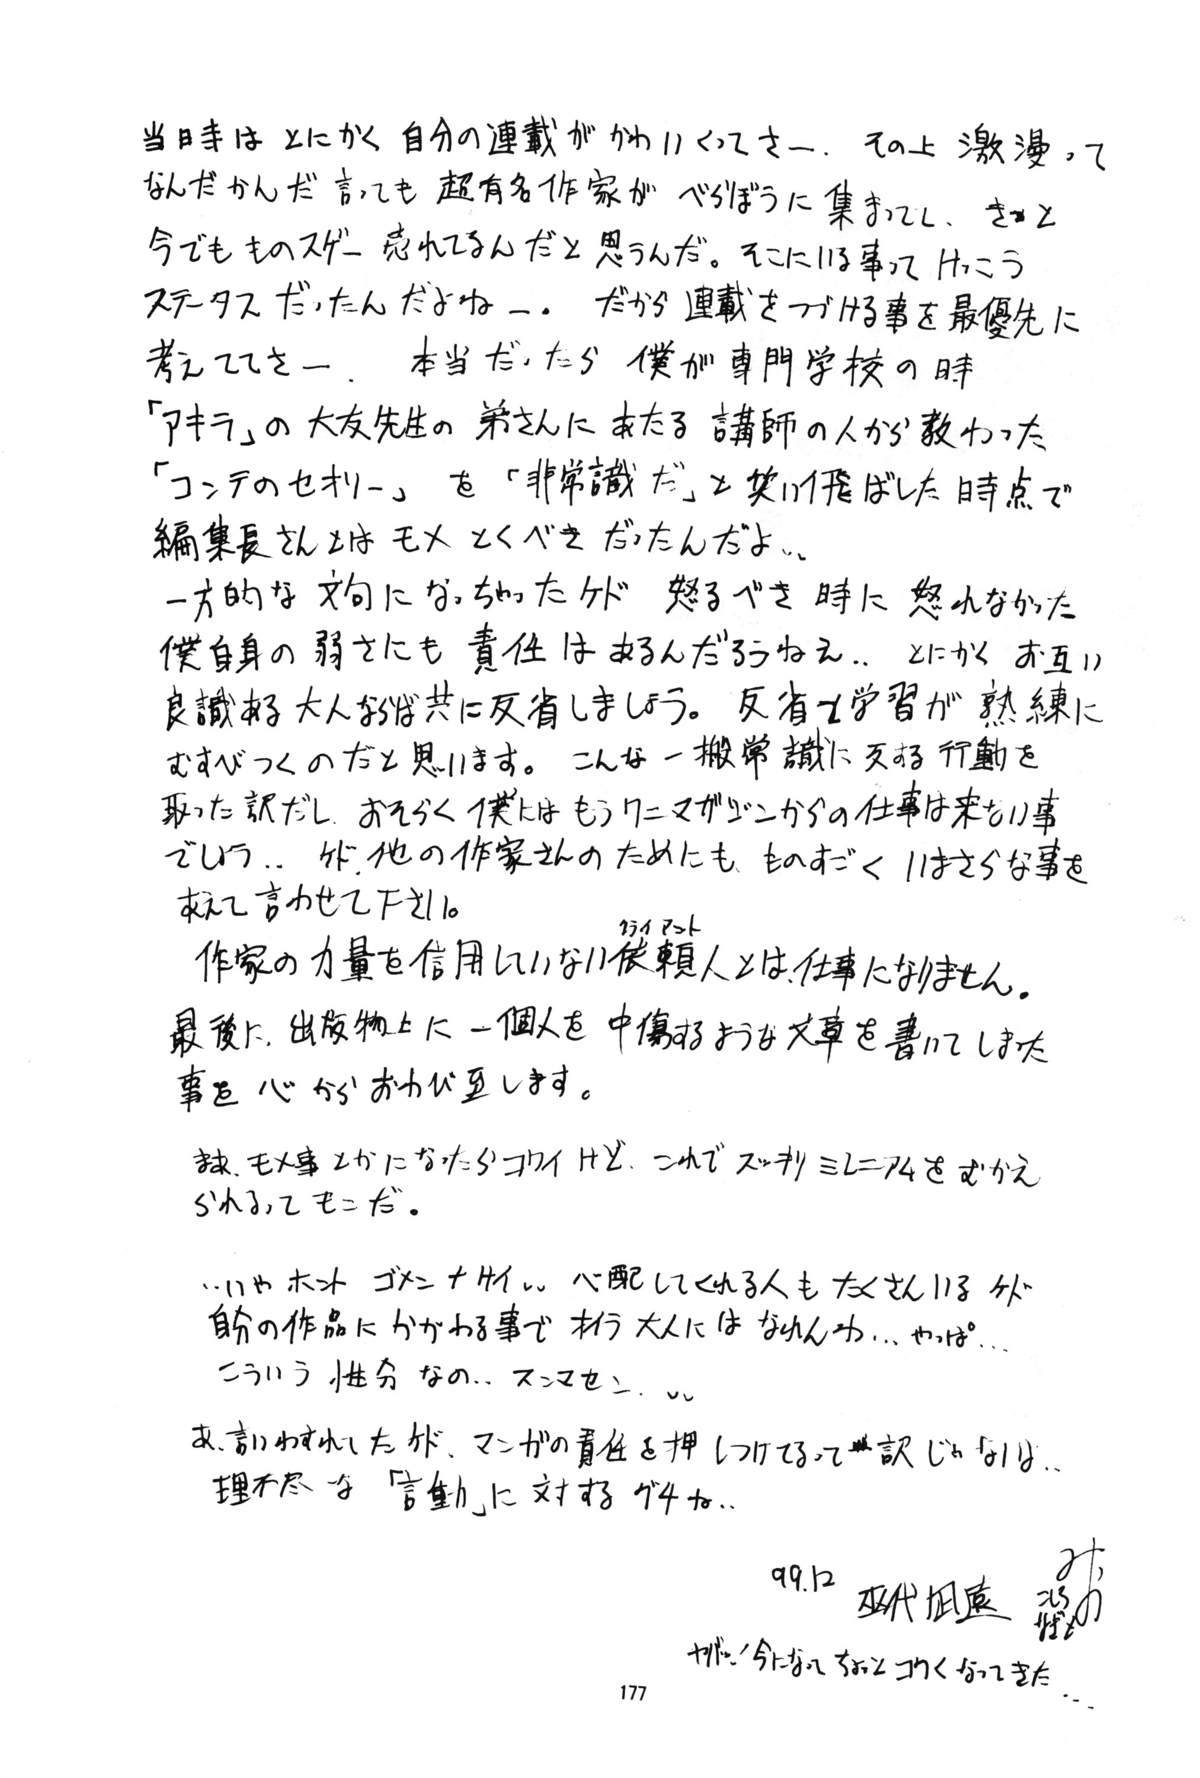 当時は とにかく 自分の連載が かわいくってさー. その上 激漫って
なんだかんだ 言っても 超有名作家が べらぼうに 集まってし、きっと
今でも ものスゲー 売れてるんだと 思うんだ。そこにいる事って けっこう
ステータス だったんだよねー。 だから 連載をつづける事を最優先に
考えててさー. 本当だったら 僕が専門学校の時
「アキラ」の 大友先生の 弟さんに あたる 講師の人から教わった
「コンテのセオリー」 を 「非常識だ」と 笑い飛ばした時点で
編集長さんとは モメ とくべき だったんだよ..
一方的な 文句に なっちゃったケド 怒るべき 時に 怒れなかった
僕自身の 弱さにも 責任は あるんだろうねぇ.. とにかく お互い
良識ある 大人ならば共に反省しましょう。反省と学習が 熟練に
むすびつくのだと思います。こんな 一搬常識に反する行動を
取った訳だし、おそらく僕にはもうワニマガジンからの仕事は来ない事
でしょう.. ケド、他の作家さんのためにも、ものすごく いまさらな事を
敢えて言わせて下さい。
作家の力量を信用していない依頼人とは、仕事になりません。
クライアント
最後に、出版物上に 一個人を 中傷するような文章を書いてしまった
事を 心から おわび致します。
まぁ、モメ事とかになったらコワイけど、これで スッキリ ミレニアムをむかえ
られるってモンだ。
..いや ホント ゴメンナサイ.. 心配してくれる人も たくさんいるケド
自分の作品に かかわる事で オイラ 大人には なれんわ... やっぱ...
こういう 性分 なの.. スンマセン...
あ、言いわすれてたケド、マンガの責任を押しつけてるって訳じゃないよ..
理不尽な 「言動」に 対する グチね..
99.12
巫代凪遠
ヤバッ!今になって ちょっと コワくなってきた...
177